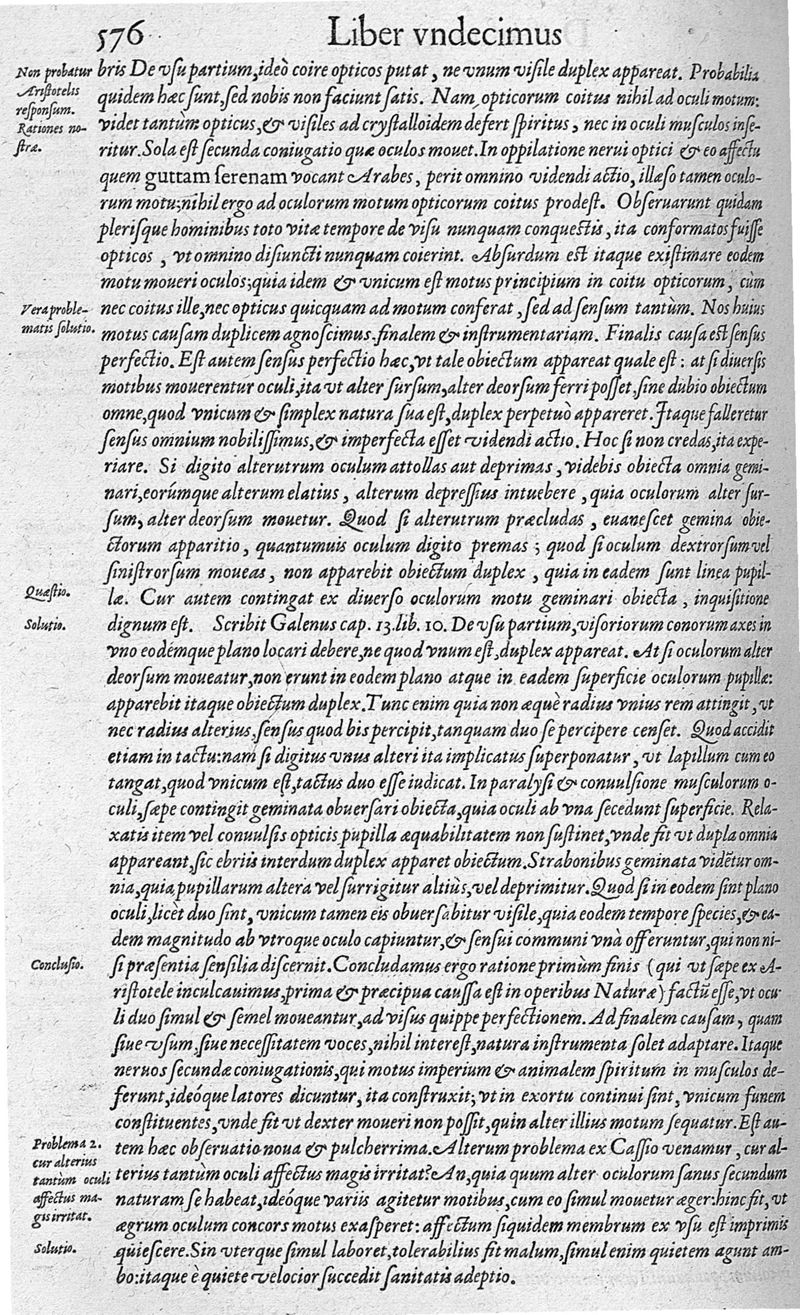 576
Liber vndecimus
Non probatur
Aristotelis
responsum.
Rationes no-
stræ.
bris De vsu partium, ideò coire opticos putat, ne vnum visile duplex appareat. Probabilia
quidem hæc sunt, sed nobis non faciunt satis. Nam opticorum coitus nihil ad oculi motum:
videt tantùm opticus, & visiles ad crystalloidem defert spiritus, nec in oculi musculos inse-
ritur. Sola est secunda coniugatio quæ oculos mouet. In oppilatione nerui optici & eo affectu
quem guttam serenam vocant Arabes, perit omnino videndi actio, illæso tamen oculo-
rum motu; nihil ergo ad oculorum motum opticorum coitus prodest. Obseruarunt quidam
plerisque hominibus toto vitæ tempore de visu nunquam conquestis, ita conformatos fuisse
opticos, vt omnino disiuncti nunquam coierint. Absurdum est itaque existimare eodem
motu moueri oculos; quia idem & vnicum est motus principium in coitu opticorum, cùm
Vera proble-
matis solutio.
nec coitus ille, nec opticus quicquam ad motum conferat, sed ad sensum tantùm. Nos huius
motus causam duplicem agnoscimus. finalem & instrumentariam. Finalis causa est sensus
perfectio. Est autem sensus perfectio hæc, vt tale obiectum appareat quale est: at si diuersis
motibus mouerentur oculi, ita vt alter sursum, alter deorsum ferri posset, sine dubio obiectum
omne, quod vnicum & simplex natura sua est, duplex perpetuò appareret. Itaque falleretur
sensus omnium nobilissimus, & imperfecta esset videndi actio. Hoc si non credas, ita expe-
riare. Si digito alterutrum oculum attollas aut deprimas, videbis obiecta omnia gemi-
nari, eorúmque alterum elatius, alterum depressius intuebere, quia oculorum alter sur-
sum, alter deorsum mouetur. Quod si alterutrum præcludas, euanescet gemina obie-
ctorum apparitio, quantumuis oculum digito premas; quod si oculum dextrorsum vel
sinistrorsum moueas, non apparebit obiectum duplex, quia in eadem sunt linea pupil-
Quæstio.
læ. Cur autem contingat ex diuerso oculorum motu geminari obiecta, inquisitione
Solutio.
dignum est. Scribit Galenus cap. 13. lib. 10. De vsu partium, visoriorum conorum axes in
vno eodémque plano locari debere, ne quod vnum est, duplex appareat. At si oculorum alter
deorsum moueatur, non erunt in eodem plano atque in eadem superficie oculorum pupillæ:
apparebit itaque obiectum duplex. Tunc enim quia non æquè radius vnius rem attingit, vt
nec radius alterius, sensus quod bis percipit, tanquam duo se percipere censet. Quod accidit
etiam in tactu: nam si digitus vnus alteri ita implicatus superponatur, vt lapillum cum eo
tangat, quod vnicum est, tactus duo esse iudicat. In paralysi & conuulsione musculorum o-
culi, sæpe contingit geminata obuersari obiecta, quia oculi ab vna secedunt superficie. Rela-
xatis item vel conuulsis opticis, pupilla æquabilitatem non sustinet, vnde fit vt dupla omnia
appareant, sic ebriis interdum duplex apparet obiectum. Strabonibus geminata vidẽtur om-
nia, quia pupillarum altera vel surrigitur altiùs, vel deprimitur. Quod si in eodem sint plano
oculi, licèt duo sint, vnicum tamen eis obuersabitur visile, quia eodem tempore species, & ea-
dem magnitudo ab vtroque oculo capiuntur, & sensui communi vnà offeruntur, qui non ni-
Conclusio.
si præsentia sensilia discernit. Concludamus ergo ratione primùm finis (qui vt sæpe ex A-
ristotele inculcauimus, prima & præcipua caussa est in operibus Naturæ) factũ esse, vt ocu-
li duo simul & semel moueantur, ad visus quippe perfectionem. Ad finalem causam, quam
siue vsum, siue necessitatem voces, nihil interest, natura instrumenta solet adaptare. Itaque
neruos secundæ coniugationis, qui motus imperium & animalem spiritum in musculos de-
ferunt, ideóque latores dicuntur, ita construxit; vt in exortu continui sint, vnicum funem
constituentes, vnde fit vt dexter moueri non possit, quin alter illius motum sequatur. Est au-
Problema 2.
cur alterius
tantùm oculi
affectus ma-
gis irritat.
tem hæc obseruatio noua & pulcherrima. Alterum problema ex Cassio venamur, cur al-
terius tantùm oculi affectus magis irritat? An, quia quum alter oculorum sanus secundum
naturam se habeat, ideóque variis agitetur motibus, cum eo simul mouetur æger: hinc fit, vt
ægrum oculum concors motus exasperet: affectum siquidem membrum ex vsu est imprimis
Solutio.
quiescere. Sin vterque simul laboret, tolerabilius fit malum, simul enim quietem agunt am-
bo: itaque è quiete velocior succedit sanitatis adeptio.